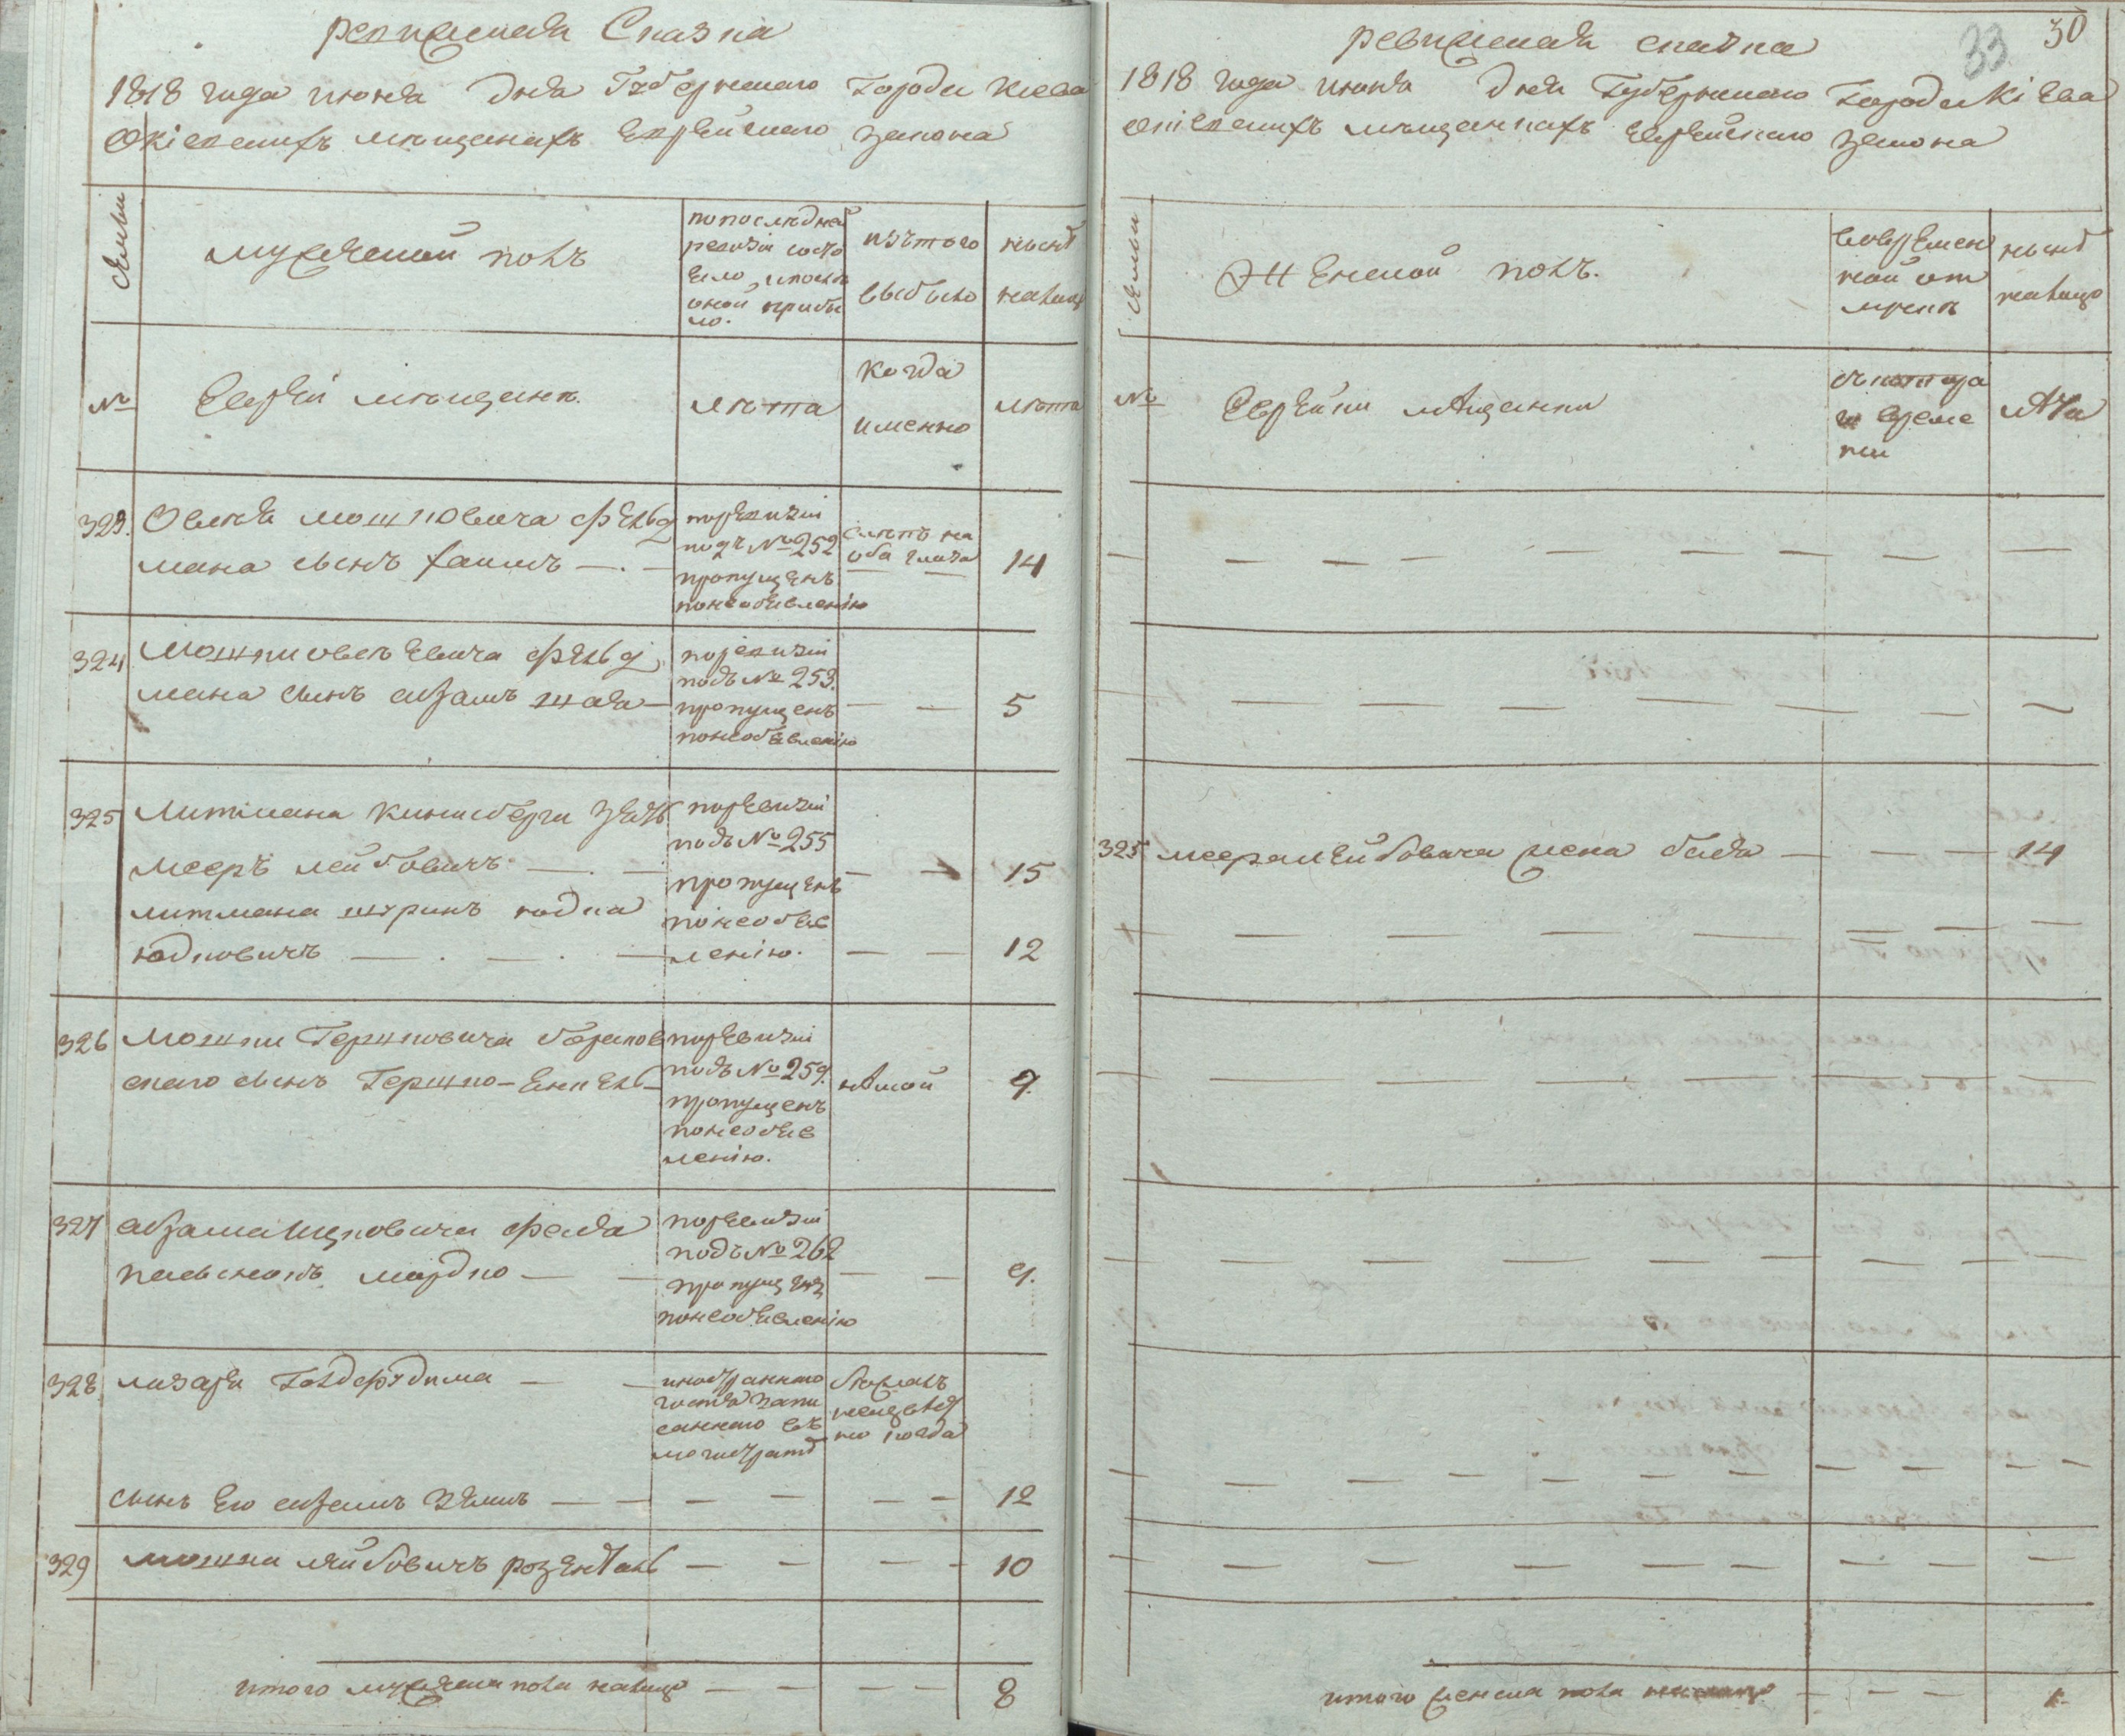 ревижская Сказка
1818 года июня дня Губернского Города Киева
О кіевскихъ мещанахъ Еврейскаго закона
семьи
мужеской полъ
по последней
ревизіи состо
яло, и после
оной прибы
ло.
изъ того
выбыло
ныне
налицо
№
Еврей мещане.
лета
когда
именно
лета
323.
Овсея Мошковича Фельд
мана сынъ Хаимъ
по ревизіи
подъ № 252
пропущенъ
по необъявленію
слепъ на
оба глаза
14
324
Мошки Овсеевича Фельд
мана сынъ Абрамъ Шая
по ревизіи
подъ № 253.
пропущенъ
по необъявленію
5
325
Литмана Кинисберга зять
Мееръ Лейбовичъ
по ревизіи
подъ № 255
пропущенъ
по необъяв
ленію.
15
Литмана шуринъ Юдка
Юдковичъ
12
326
Мошки Гершковича
скаго сынъ Гершко-Енкель
по ревизіи
подъ № 259.
пропущенъ
по необъяв
ленію.
немой
9.
327
Абрама Ицковича
Мордко
по ревизіи
подъ № 262
пропущенъ
по необъявленію
9.
328
Лазаря
иностраннаго
гостя запи
саннаго въ
магистрате
бежалъ
неизвест
но когда
сынъ его Абрамъ Зелик
12
329
Мошка Лейбовичъ Розенталь
10
итого мужеска пола налицо
8
33
30
ревижская сказка
1818 года июня дня Губернскаго Города Кіева
о кіевскихъ мещанкахъ Еврейскаго закона
семьи
Женской полъ.
во времен
ной от
лучке
ныне
налицо
№
Еврейки мещанки
съ котораго
време
ни
лета
325
Меера Лейбовича жена Бася
14
итого женска пола налицо
1.